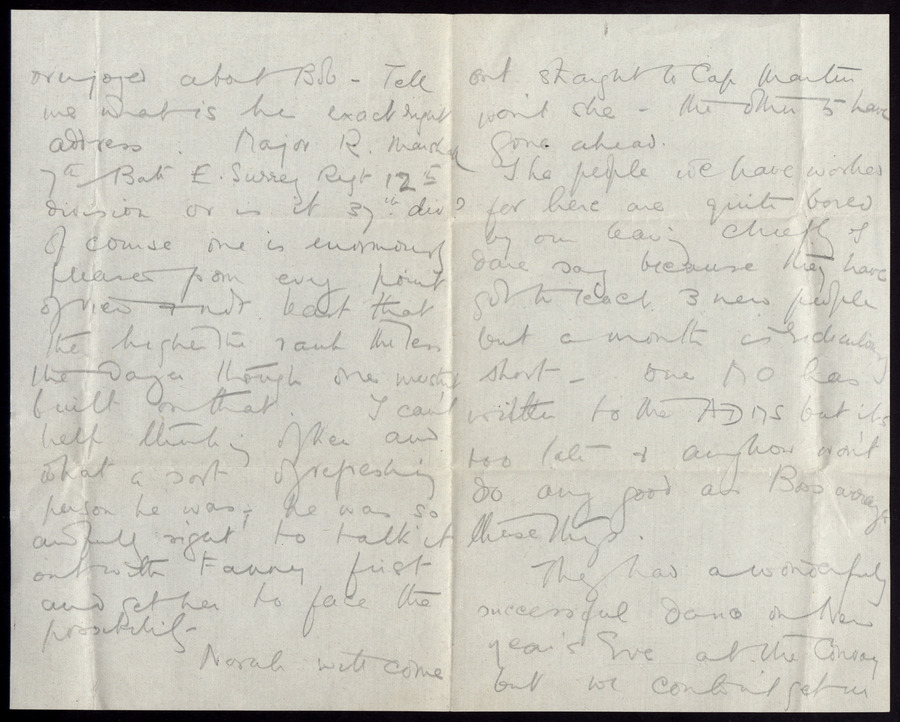 overjoyed about Bob - Tell
me what is he exact right
address. Major R. Marshall
7th Batt E. Surrey Regt 12th
division or is it 37th div?
Of course one is enormously
pleased from every point
of view & not least that
the higher the rank the less
the danger though one mustn't
built on that. I can't
help thinking of Ken and
what a sort of refreshing
person he was; he was so
awfully right to talk it
out with Fanny first
and get her to face the
possibility
Norah will come
out straight to Cap Martin
won't she - the other 5 have
gone ahead.
The people we have worked
for here are quite bored
by our leaving chiefly I
dare say because they have
got to teach 3 new people
but a month is ridiculously
short - One MO has
written to the ADMS but its
too late & anyhow won't
do any good as Boss arranges
these things.
They had a wonderfully
successful dance on New
year's Eve at the Convoy
but we couldn't get in